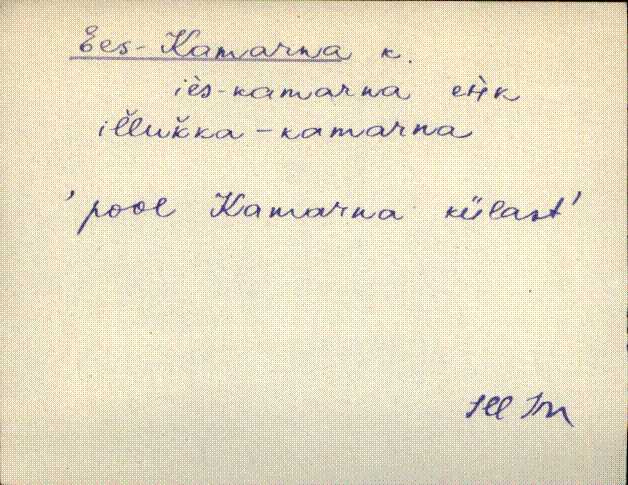 Ees-Kamarna k.
iès-kamarna ehk
illukka-kamarna
'pool Kamarna külast'